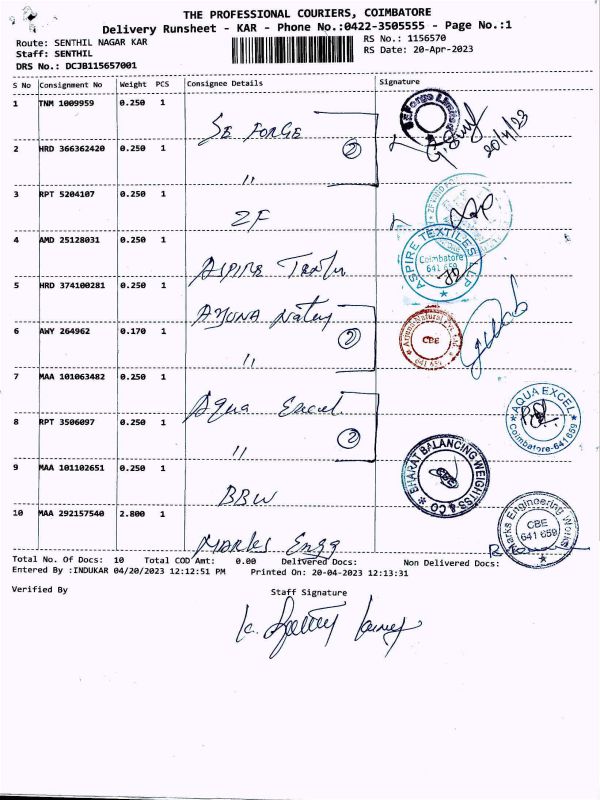 THE PROFESSIONAL COURIERS, COIMBATORE
Delivery Runsheet - KAR - Phone No.:0422-3505555 - Page No.:1
Route: SENTHIL NAGAR KAR
RS No.: 1156570
Staff: SENTHIL
RS Date: 20-Apr-2023
DRS No.: DCJB115657001
S No Consignment No Weight PCS Consignee Details Signature
1 TNM 1009959 0.250 1 SE FORGE
2 HRD 366362420 0.250 1 "
3 RPT 5204107 0.250 1 ZF
4 AMD 25128031 0.250 1 ASPIRE
5 HRD 374100281 0.250 1 ARJUNA
6 AWY 264962 0.170 1 "
7 MAA 101063482 0.250 1 Aqua Excel
8 RPT 3506097 0.250 1 "
9 MAA 101102651 0.250 1 BBW
10 MAA 292157540 2.800 1 Marks Engg
2
2
2
20/4/23
ASPIRE TEXTILES
Coimbatore
641 659
CBE
641 659
AQUA EXCEL
Coimbatore-641 659
BHARAT BALANCING WEIGHTSS & CO
Marks Engineering Works
CBE
641 659
Total No. Of Docs: 10 Total COD Amt: 0.00 Delivered Docs: Non Delivered Docs:
Entered By :INDUKAR 04/20/2023 12:12:51 PM Printed On: 20-04-2023 12:13:31
Verified By
Staff Signature